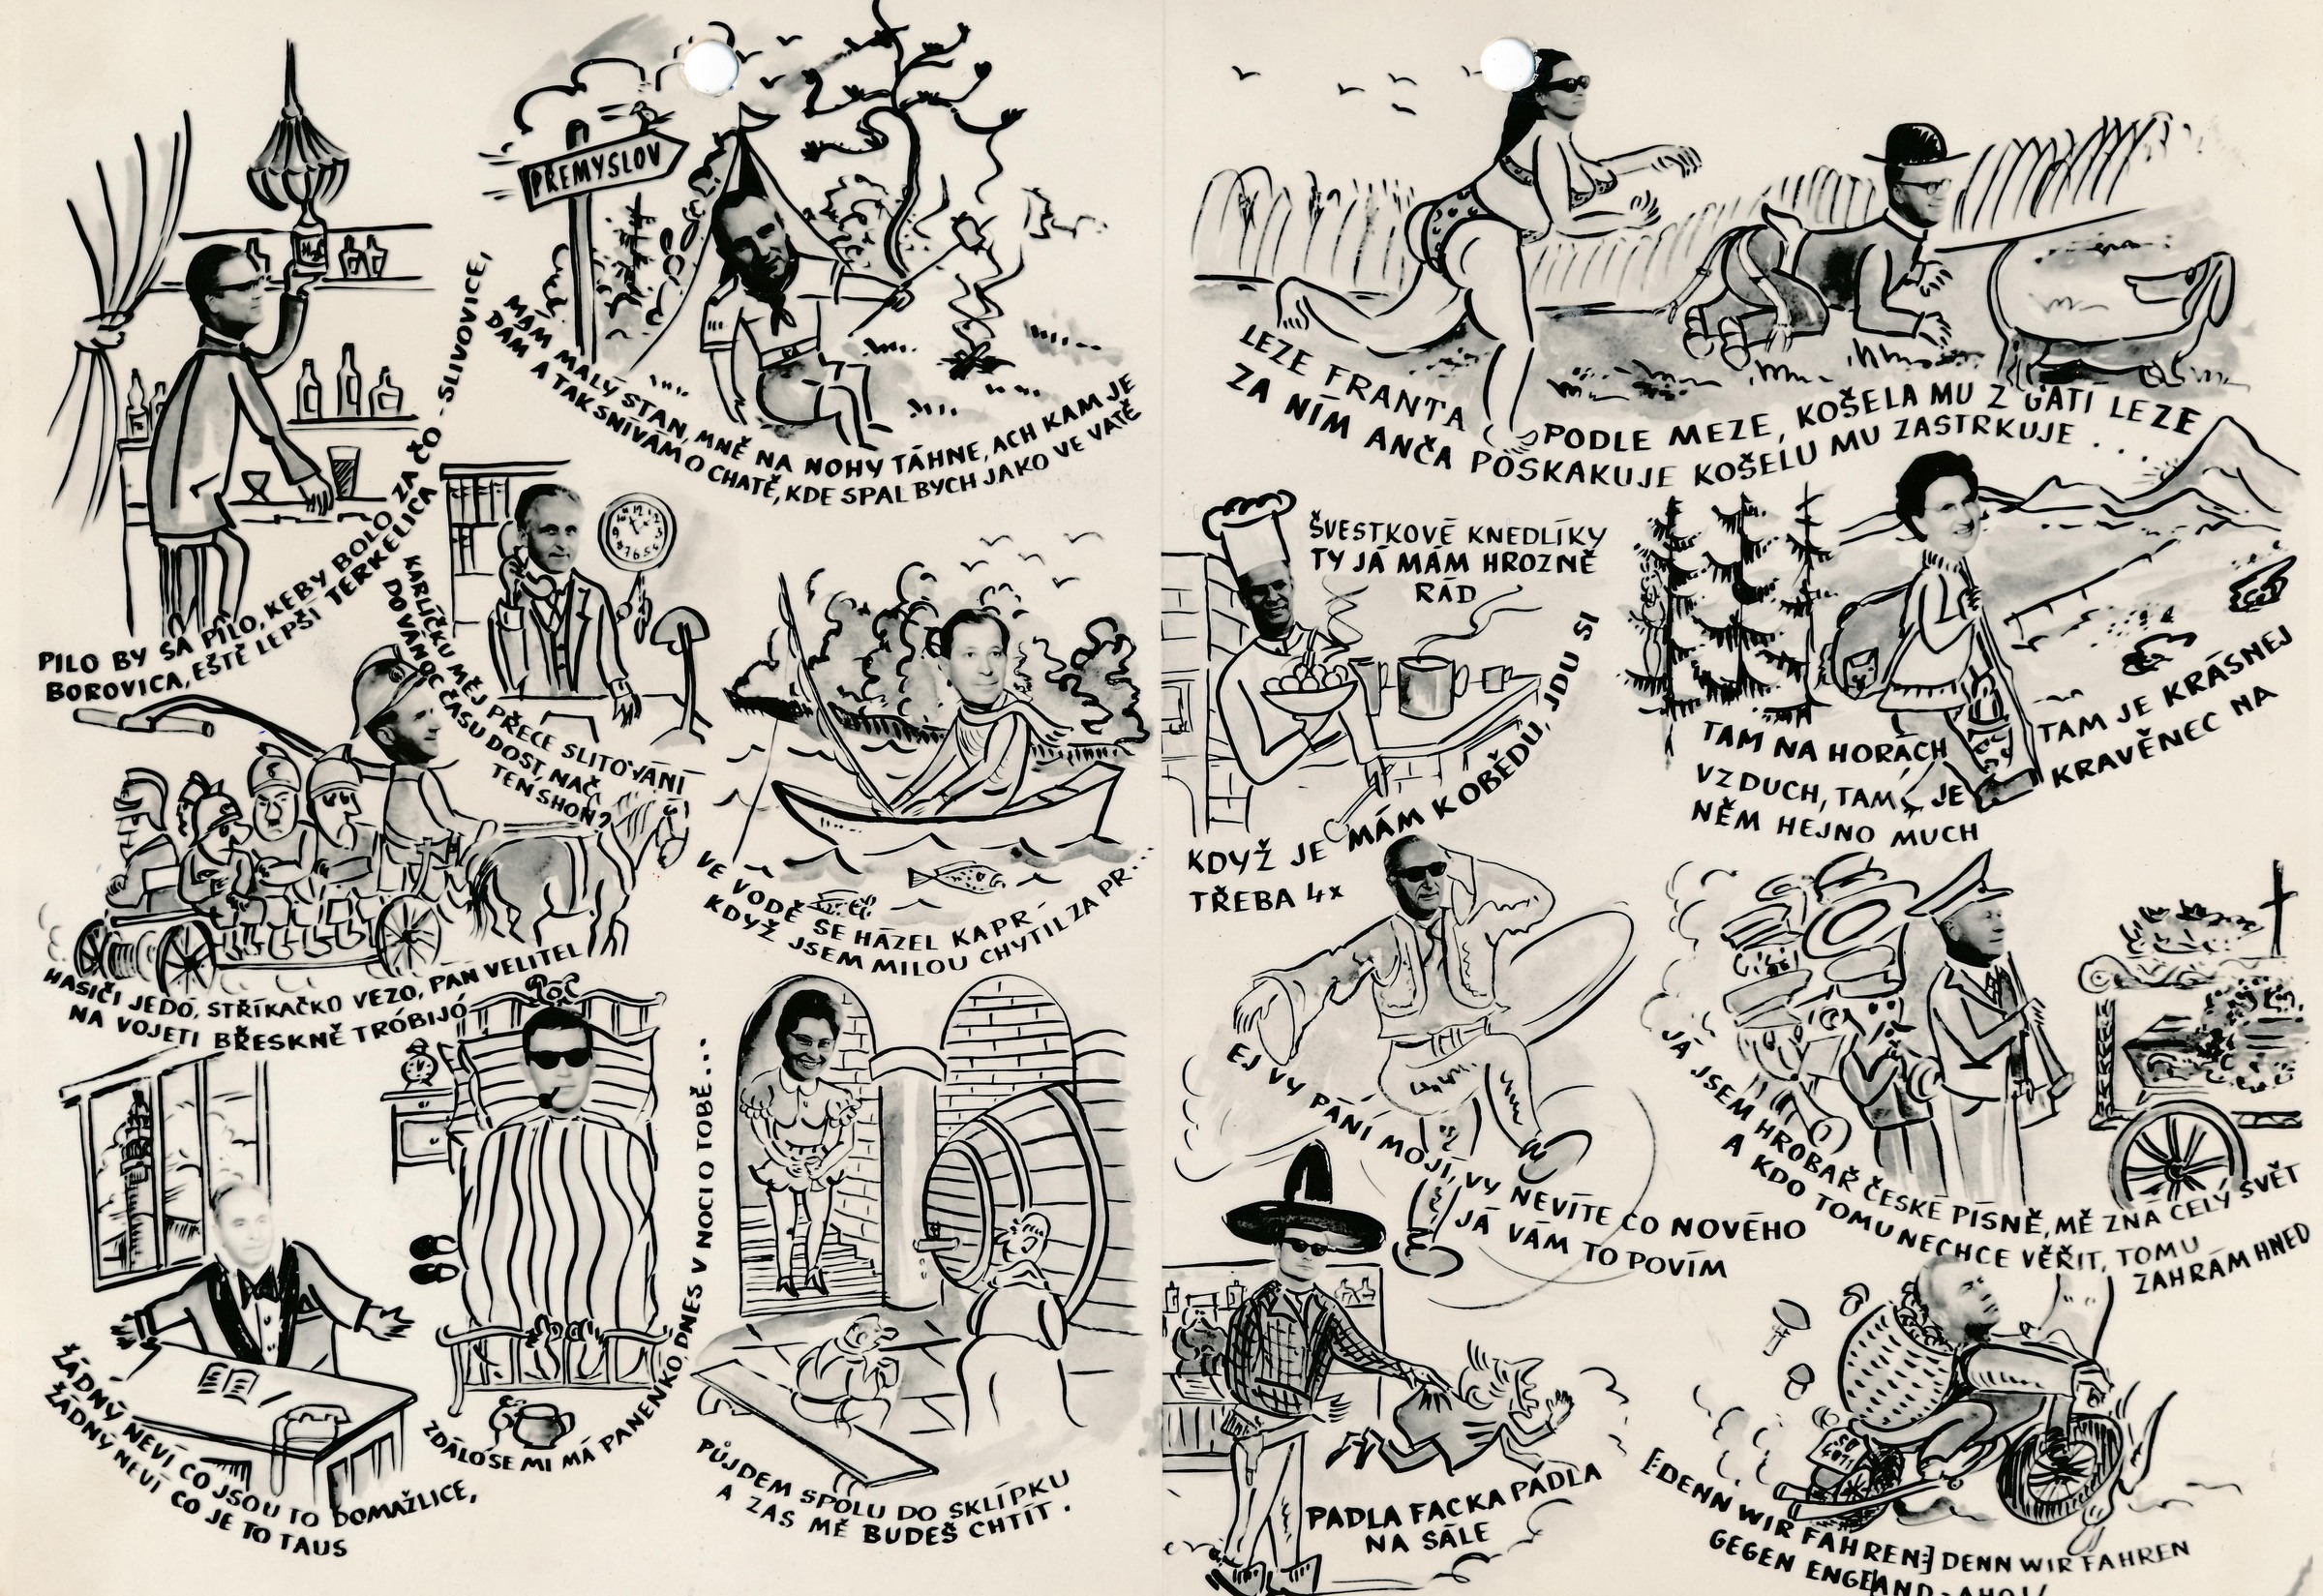 PŘEMYSLOV
PILO BY SA PILO, KEBY BOLO ZA ČO - SLIVOVICE,
BOROVICA, EŠTĚ LEPŠÍ TERKELICA
MÁM MALÝ STAN, MNĚ NA NOHY TÁHNE, ACH KAM JE
DÁM A TAK SNÍVÁM O CHATĚ, KDE SPAL BYCH JAKO VE VATĚ
KARLÍČKU MĚJ PŘECE SLITOVÁNÍ
DO VÁNOC ČASU DOST, NAČ
TEN SHON?
HASIČI JEDÓ, STŘÍKAČKO VEZO, PAN VELITEL
NA VOJETI BŘESKNĚ TRÓBIJÓ
VE VODĚ SE HÁZEL KAPR-
KDYŽ JSEM MILOU CHYTIL ZA PR...
ŽÁDNÝ NEVÍ CO JSOU TO DOMAŽLICE,
ŽÁDNÝ NEVÍ CO JE TO TAUS
ZDÁLO SE MI MÁ PANENKO, DNES V NOCI O TOBĚ...
PŮJDEM SPOLU DO SKLÍPKU
A ZAS MĚ BUDEŠ CHTÍT.
LEZE FRANTA PODLE MEZE, KOŠELA MU Z GATÍ LEZE
ZA NÍM ANČA POSKAKUJE KOŠELU MU ZASTRKUJE...
ŠVESTKOVÉ KNEDLÍKY
TY JÁ MÁM HROZNĚ
RÁD
KDYŽ JE MÁM K OBĚDU, JDU SI
TŘEBA 4x
TAM NA HORÁCH TAM JE KRÁSNEJ
VZDUCH, TAM JE KRAVĚNEC NA
NĚM HEJNO MUCH
EJ VY PÁNÍ MOJÍ, VY NEVÍTE CO NOVÉHO
JÁ VÁM TO POVÍM
JÁ JSEM HROBAŘ ČESKÉ PÍSNĚ, MĚ ZNÁ CELÝ SVĚT
A KDO TOMU NECHCE VĚŘIT, TOMU
ZAHRÁM HNED
PADLA FACKA PADLA
NA SÁLE
[:DENN WIR FAHREN:] DENN WIR FAHREN
GEGEN ENGELAND - AHOJ!